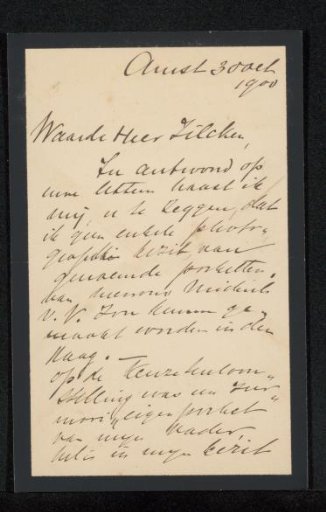 Amst 30 oct
1900
Waarde Heer Zilcken,
In antwoord op
uwe letteren haast ik
mij, u te zeggen, dat
ik geen enkele photo-
graphie bezit van
genoemde portretten.
van mevrouw
v. V. Zou kunnen ge-
maakt worden in den
Haag. —
op de Keuzetentoon-
stelling was un
eigen portret
van mijn vader
het is in mijn bezit